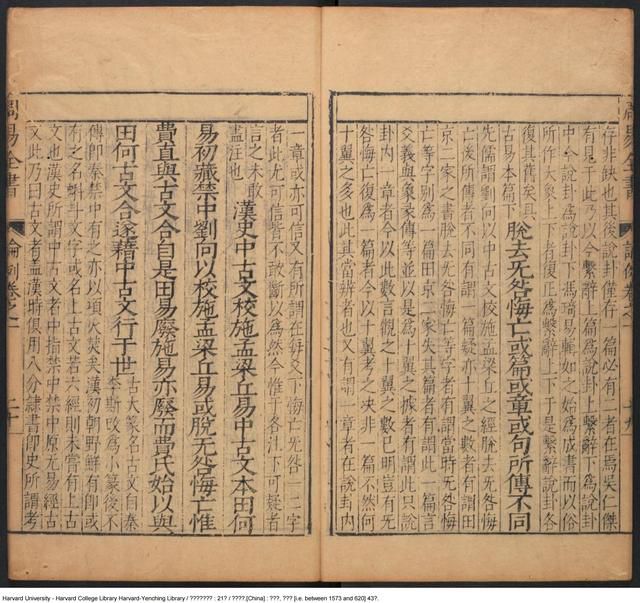 存非缺也其後說卦僅存一篇必有二者在焉吳仁傑
有見于此乃以今繫辭上篇為說卦上繫辭下為說卦
中今說卦為說卦下馮琦易輯如之始為成書而以俗
所作大象上下者復正為繫辭上下于是繫辭說卦各
復其舊矣具
古易本篇下
脫去无咎悔亡或篇或章或句所傳不同
先儒謂劉向以中古文校施孟梁丘之經脫去无咎悔
亡後所傳者不同有謂一篇疑亦十翼之數者有謂田
京二家之書脫去无咎悔亡等字者有謂當時无咎悔
亡等字別為一篇田京二家失其篇者有謂此一篇言
爻義與彖象傳等並以是為十翼之據者有謂此只說
卦內一章者余以此數言觀之十翼之數已明豈有无
咎悔亡復為一篇者今以十翼考之决非一篇不然何
十翼之多也此其當辨者也又有謂一章者在說卦內
一章或亦可信又有所謂在每爻下悔亡无咎一二字
者此尤可信皆不敢斷以為然今惟于各卦下可疑者
言之未敢
盡注也
漢史中古文校施孟梁丘易中古文本田何
易初藏禁中劉向以校施孟梁丘易或脫无咎悔亡惟
費直與古文合自是田易廢施易亦廢而費氏始以與
田何古文合遂藉中古文行于世
古大篆名古文自秦
李斯改為小篆後不
傳卽秦禁中有之亦以項火焚矣漢初朝野鮮有卽或
有之名蝌斗文字或名上古文若六經則未嘗有上古
文也漢史所謂中古文者中指禁中禁中原无易經古
文此乃曰古文者孟漢時俱用八分隸書卽史所謂考
周易全書
論例卷之一
二十
Harvard University - Harvard College Library Harvard-Yenching Library / ??????? : 21? / ????.[China] : ???, ??? [i.e. between 1573 and 620] 43?.